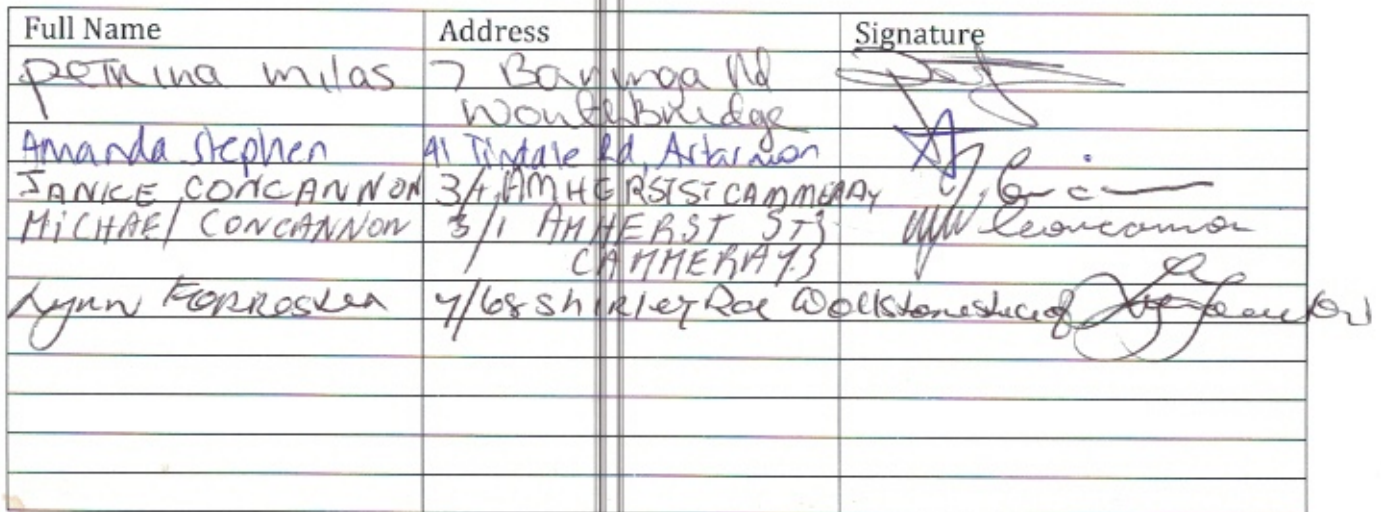 Full Name Address Signature
Petrina Milas 7 Baringa Rd
Amanda Stephen 41 Tindale Rd, Artarmon
JANICE CONCANNON 3/1 AMHERST ST CAMMERAY
MICHAEL CONCANNON 3/1 AMHERST ST
CAMMERAY
Lynn 7/68 Shirley Rd Wollstonecraft